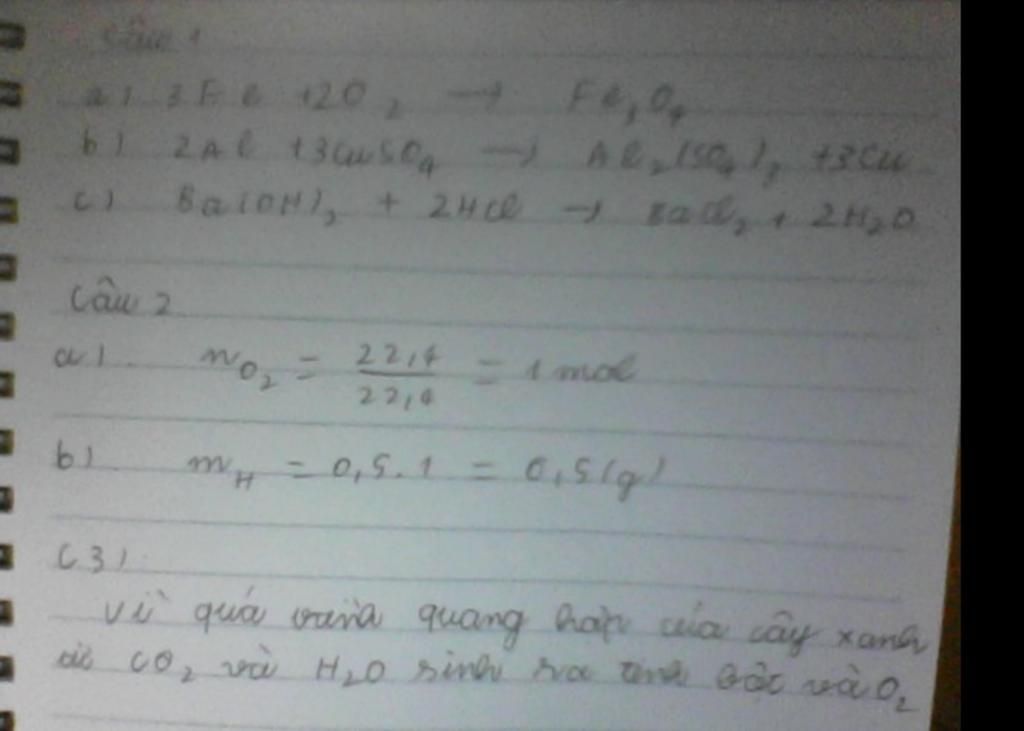 Câu 1
a) 3Fe + 2O₂ → Fe₃O₄
b) 2Al + 3CuSO₄ → Al₂(SO₄)₃ + 3Cu
c) Ba(OH)₂ + 2HCl → BaCl₂ + 2H₂O
Câu 2
a) nO₂ = 22,4/22,4 = 1 mol
b) mH = 0,5.1 = 0,5(g)
C3)
Vì quá trình quang hợp của cây xanh
từ CO₂ và H₂O sinh ra tinh bột và O₂